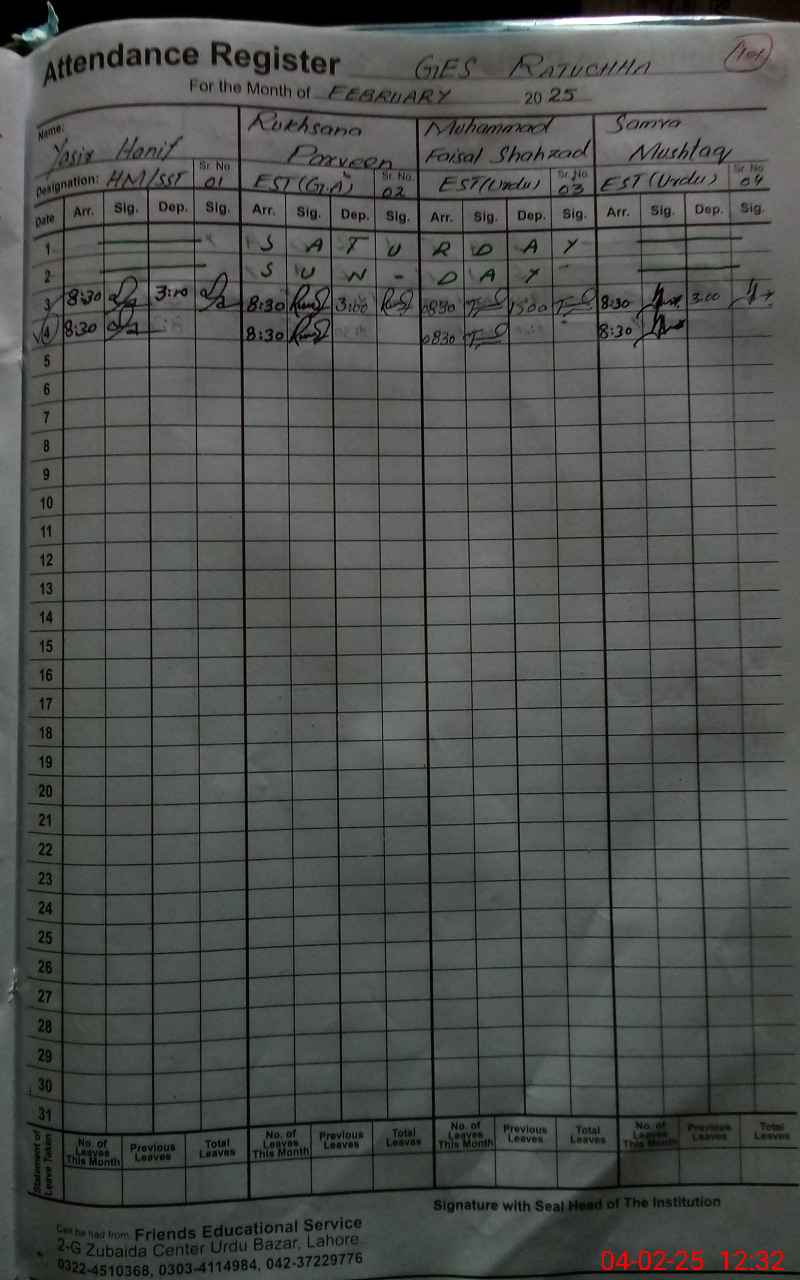 Attendance Register GES RATUCHHA 101
For the Month of FEBRUARY 2025
Name: Yasir Hanif Rukhsana Parveen Muhammad Faisal Shahzad Samra Mushtaq
Designation: HM/SST Sr. No 01 EST (G.A) Sr. No. 02 EST (Urdu) Sr. No 03 EST (Urdu) Sr. No 04
Date Arr. Sig. Dep. Sig. Arr. Sig. Dep. Sig. Arr. Sig. Dep. Sig. Arr. Sig. Dep. Sig.
1 S A T U R D A Y
2 S U N - D A Y
3 8:30 3:00 8:30 3:00 0830 1500 8:30 3:00
4 8:30 8:30 0830 8:30
5
6
7
8
9
10
11
12
13
14
15
16
17
18
19
20
21
22
23
24
25
26
27
28
29
30
31
Statement of Leave Taken No. of Leaves This Month Previous Leaves Total Leaves No. of Leaves This Month Previous Leaves Total Leaves No. of Leaves This Month Previous Leaves Total Leaves No. of Leaves This Month Previous Leaves Total Leaves
Signature with Seal Head of The Institution
Can be had from: Friends Educational Service
2-G Zubaida Center Urdu Bazar, Lahore.
0322-4510368, 0303-4114984, 042-37229776
04-02-25 12:32